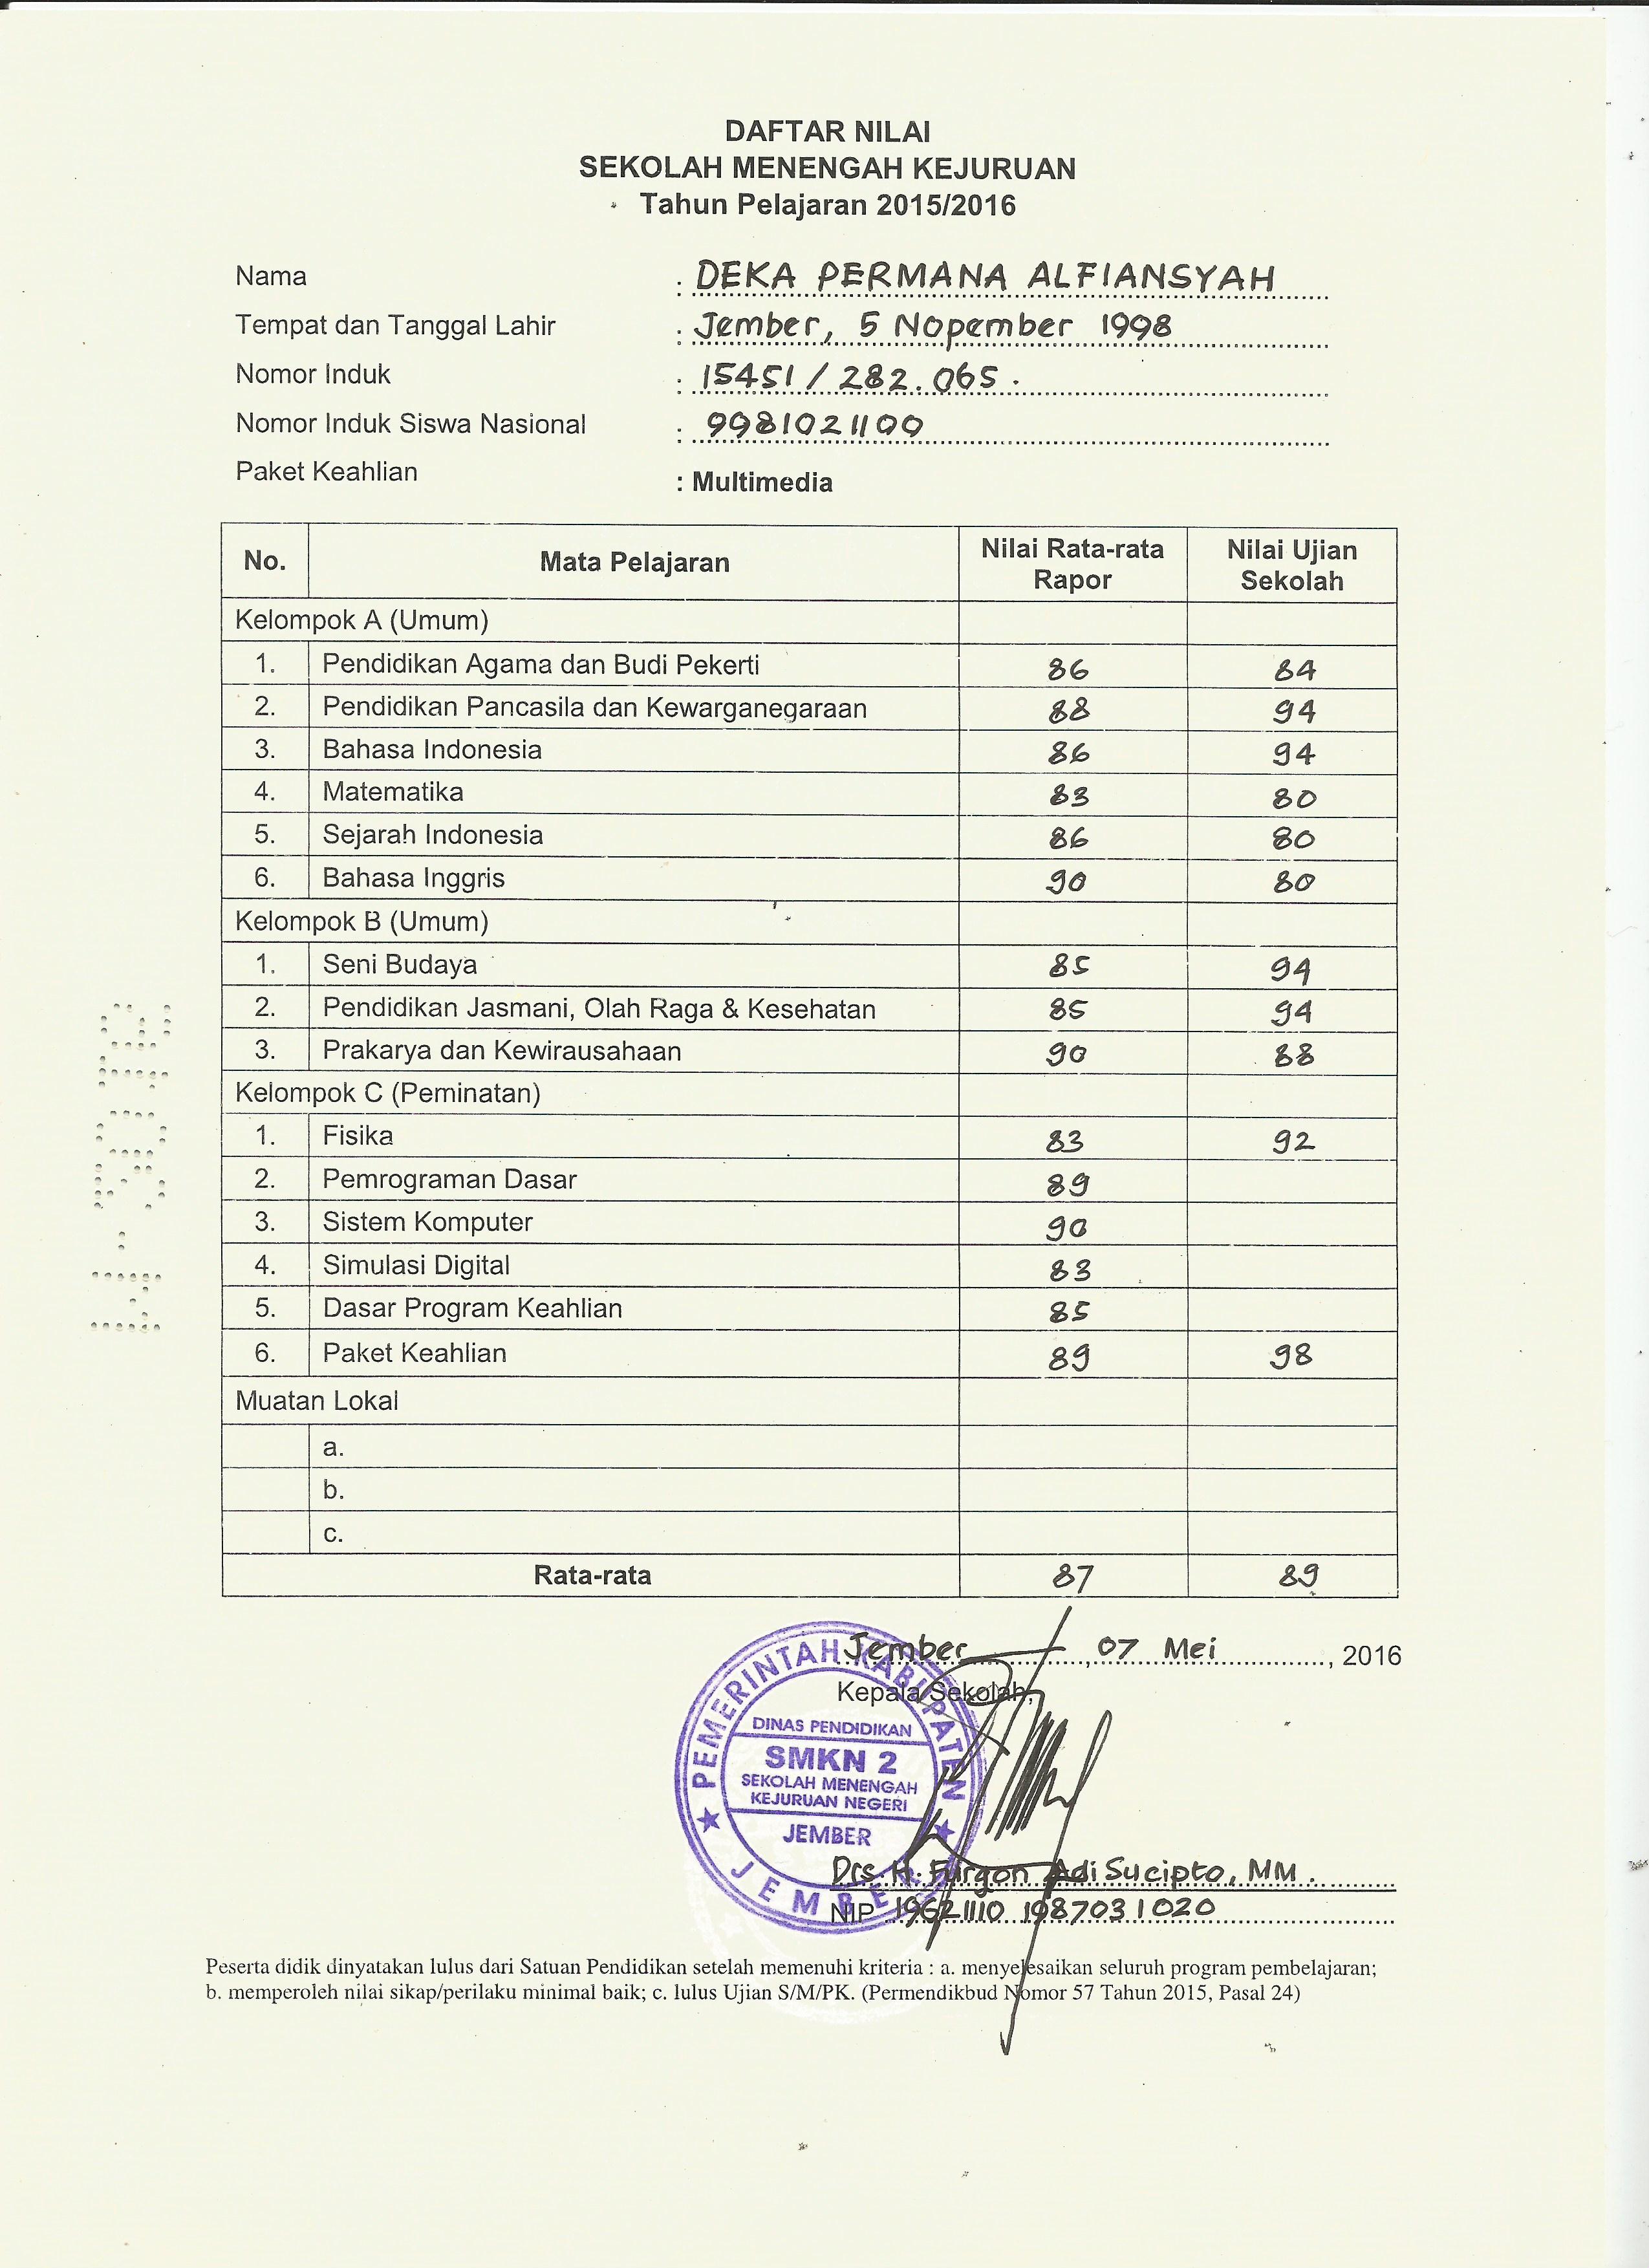 DAFTAR NILAI
SEKOLAH MENENGAH KEJURUAN
Tahun Pelajaran 2015/2016
Nama : DEKA PERMANA ALFIANSYAH
Tempat dan Tanggal Lahir : Jember, 5 Nopember 1998
Nomor Induk : 15451 / 282.065.
Nomor Induk Siswa Nasional : 9981021100
Paket Keahlian : Multimedia
No. Mata Pelajaran Nilai Rata-rata Rapor Nilai Ujian Sekolah
Kelompok A (Umum)
1. Pendidikan Agama dan Budi Pekerti 86 84
2. Pendidikan Pancasila dan Kewarganegaraan 88 94
3. Bahasa Indonesia 86 94
4. Matematika 83 80
5. Sejarah Indonesia 86 80
6. Bahasa Inggris 90 80
Kelompok B (Umum)
1. Seni Budaya 85 94
2. Pendidikan Jasmani, Olah Raga & Kesehatan 85 94
3. Prakarya dan Kewirausahaan 90 88
Kelompok C (Peminatan)
1. Fisika 83 92
2. Pemrograman Dasar 89
3. Sistem Komputer 90
4. Simulasi Digital 83
5. Dasar Program Keahlian 85
6. Paket Keahlian 89 98
Muatan Lokal
a.
b.
c.
Rata-rata 87 89
Jember, 07 Mei, 2016
Kepala Sekolah,
PEMERINTAH KABUPATEN
DINAS PENDIDIKAN
SMKN 2
SEKOLAH MENENGAH
KEJURUAN NEGERI
JEMBER
JEMBER
Drs. H. Furqon Adi Sucipto, MM.
NIP 19621110 198703 1 020
Peserta didik dinyatakan lulus dari Satuan Pendidikan setelah memenuhi kriteria : a. menyelesaikan seluruh program pembelajaran;
b. memperoleh nilai sikap/perilaku minimal baik; c. lulus Ujian S/M/PK. (Permendikbud Nomor 57 Tahun 2015, Pasal 24)